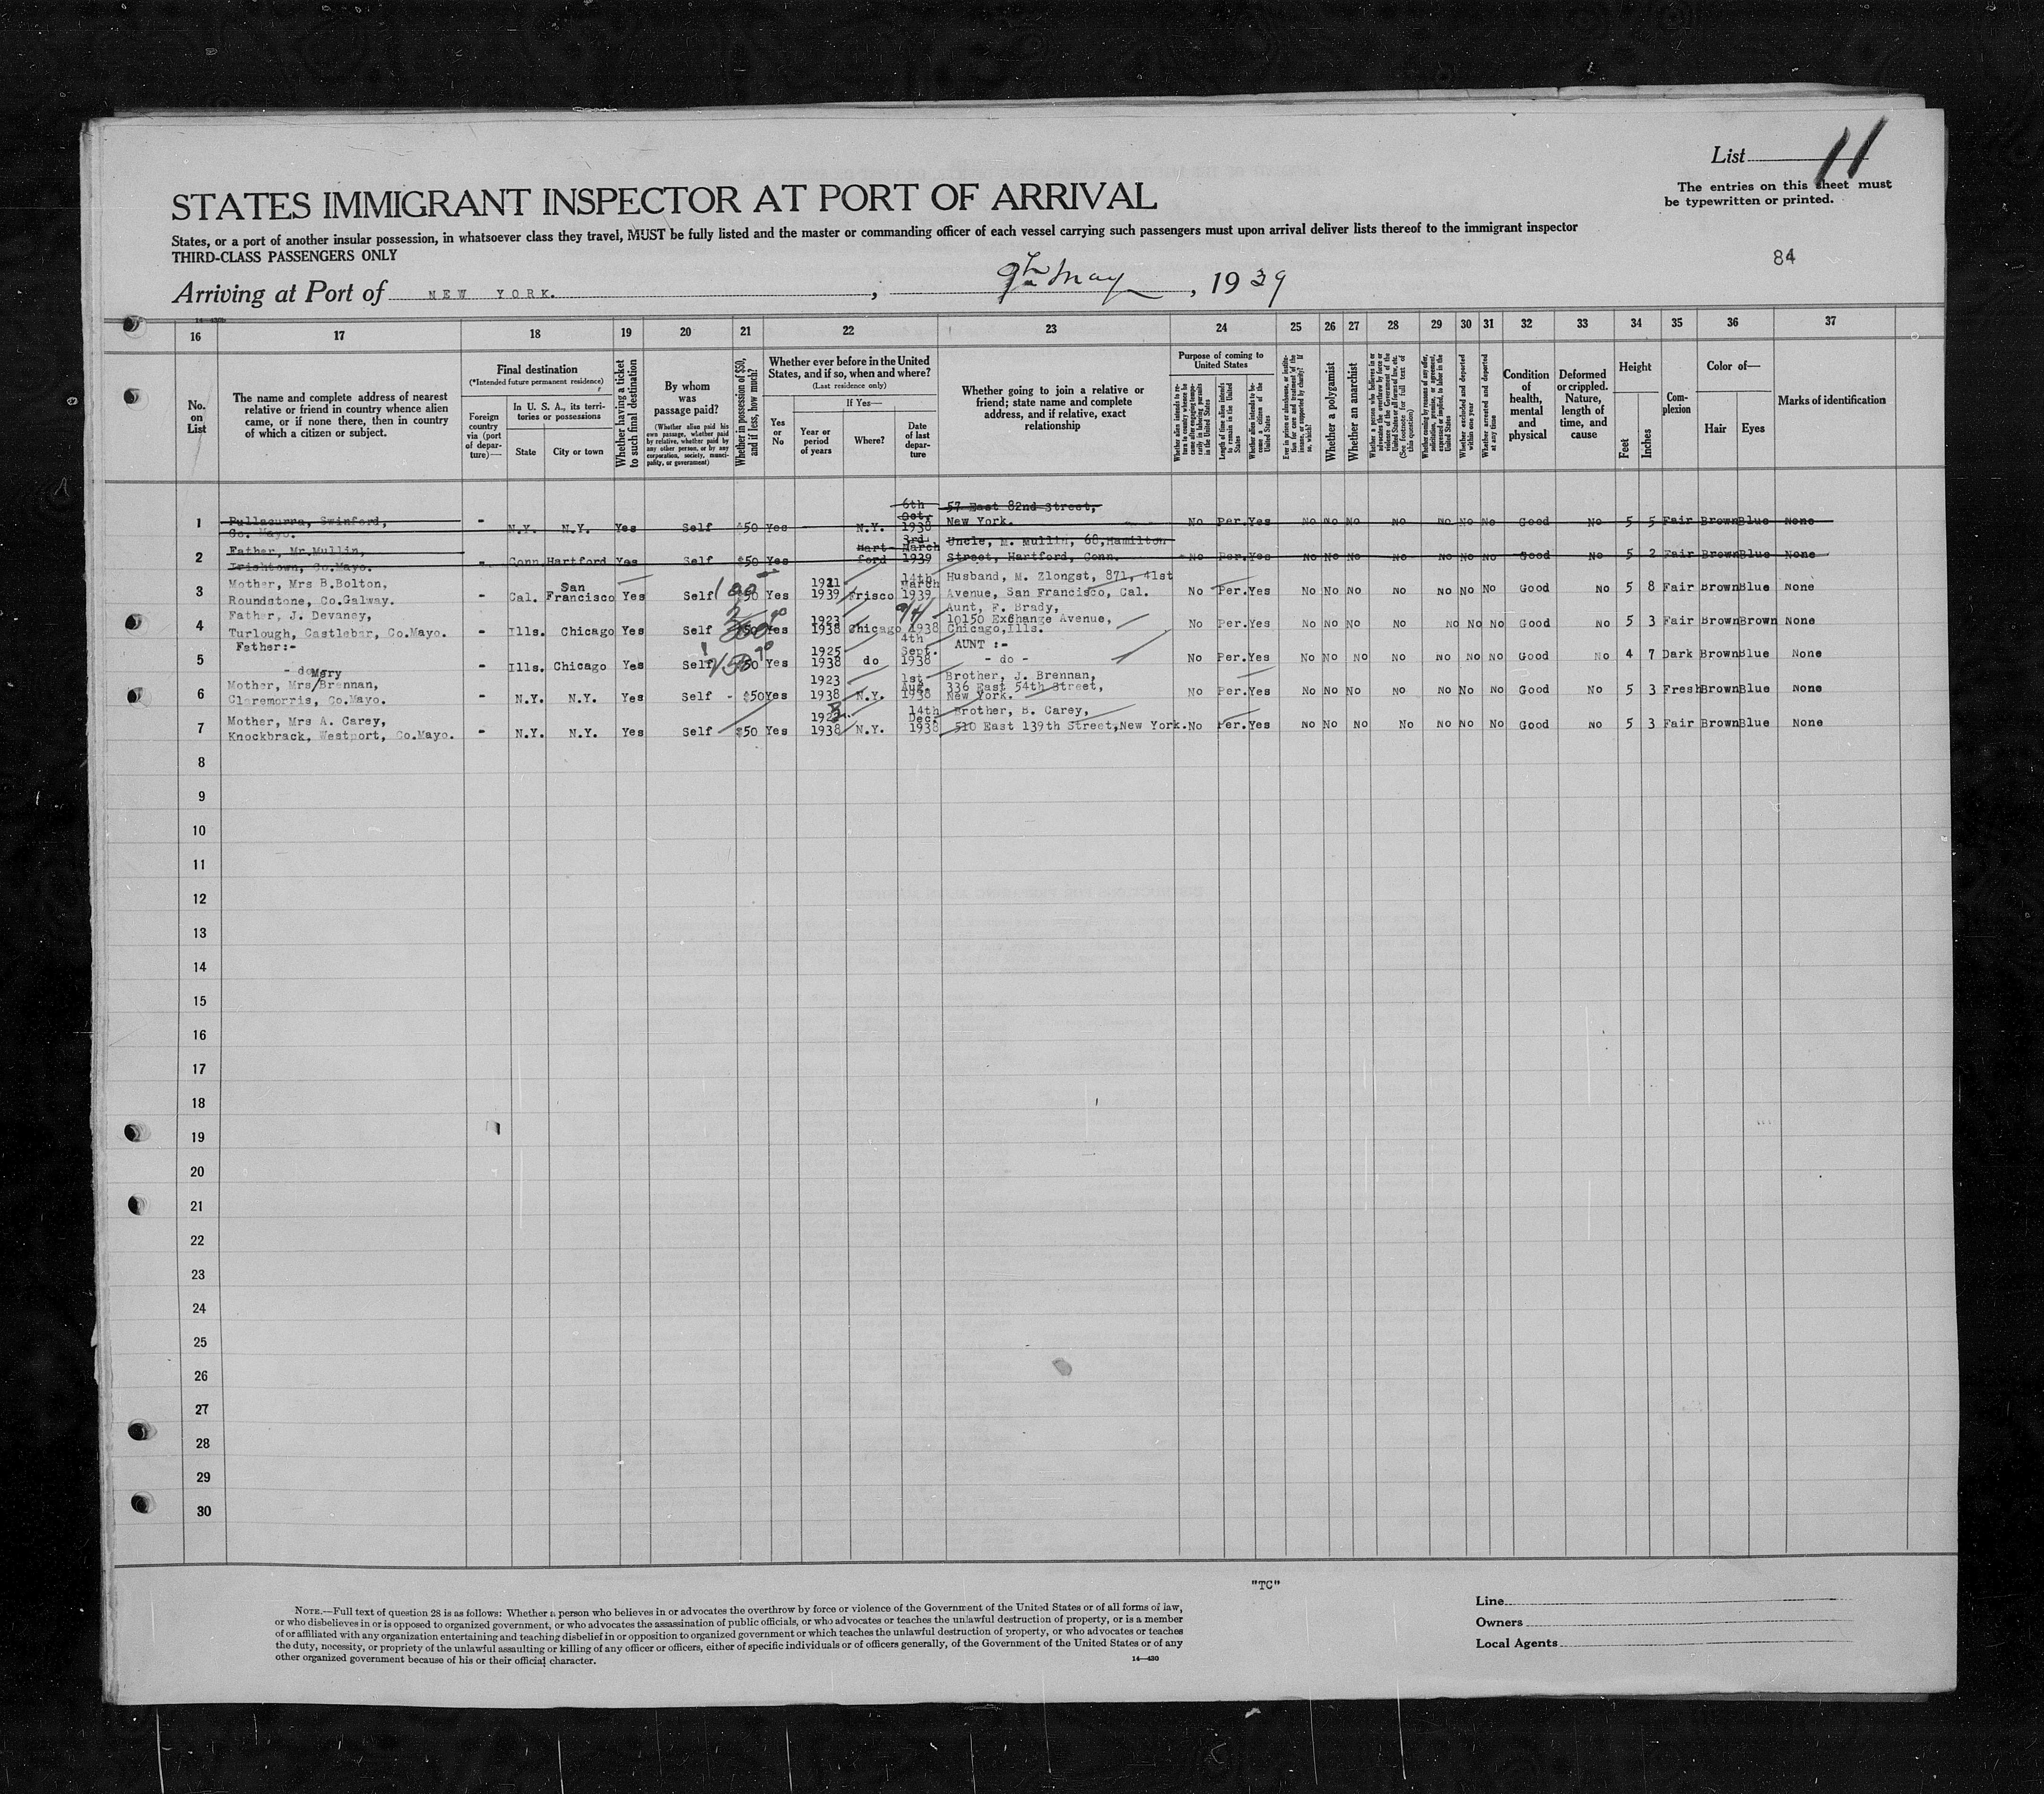 List 11
The entries on this sheet must
be typewritten or printed.
STATES IMMIGRANT INSPECTOR AT PORT OF ARRIVAL
States, or a port of another insular possession, in whatsoever class they travel, MUST be fully listed and the master or commanding officer of each vessel carrying such passengers must upon arrival deliver lists thereof to the immigrant inspector
THIRD-CLASS PASSENGERS ONLY
84
Arriving at Port of NEW YORK. , 9th May , 1939
16 17 18 19 20 21 22 23 24 25 26 27 28 29 30 31 32 33 34 35 36 37
No. on List
The name and complete address of nearest
relative or friend in country whence alien
came, or if none there, then in country
of which a citizen or subject.
Final destination
(*Intended future permanent residence)
Foreign country via (port of departure)—
In U. S. A., its territories or possessions
State
City or town
Whether having a ticket to such final destination
By whom was passage paid?
(Whether alien paid his own passage, whether paid by relative, whether paid by any other person, or by any corporation, society, municipality, or government)
Whether in possession of $50, and if less, how much?
Whether ever before in the United States, and if so, when and where?
(Last residence only)
Yes or No
If Yes—
Year or period of years
Where?
Date of last departure
Whether going to join a relative or
friend; state name and complete
address, and if relative, exact
relationship
Purpose of coming to United States
Whether alien intends to return to country whence he came after engaging temporarily in laboring pursuits in the United States
Length of time alien intends to remain in the United States
Whether alien intends to become a citizen of the United States
Whether a polygamist
Whether an anarchist
Whether excluded and deported within one year
Whether arrested and deported at any time
Condition of health, mental and physical
Deformed or crippled. Nature, length of time, and cause
Height
Feet
Inches
Complexion
Color of—
Hair
Eyes
Marks of identification
1 Pullacurra, Swinford, Co. Mayo. - N.Y. N.Y. Yes Self $50 Yes N.Y. 6th Oct, 1938 57 East 82nd Street, New York. No Per. Yes No No No No No No No Good No 5 5 Fair Brown Blue None
2 Father, Mr.Mullin, Irishtown, Co.Mayo. - Conn Hartford Yes Self $50 Yes Hart-ford 3rd March 1939 Uncle, M. Mullin, 68, Hamilton Street, Hartford, Conn. No Per. Yes No No No No No No No Good No 5 2 Fair Brown Blue None
3 Mother, Mrs B.Bolton, Roundstone, Co.Galway. - Cal. San Francisco Yes Self 100 $50 Yes 1921 1939 Frisco 14th March 1939 Husband, M. Zlongst, 871, 41st Avenue, San Francisco, Cal. No Per. Yes No No No No No No No Good No 5 8 Fair Brown Blue None
4 Father, J. Devaney, Turlough, Castlebar, Co.Mayo. - Ills. Chicago Yes Self $50 Yes 1923 1938 Chicago 1938 Aunt, F. Brady, 10150 Exchange Avenue, Chicago, Ills. No Per. Yes No No No No No No No Good No 5 3 Fair Brown Brown None
5 Father:- - do - - Ills. Chicago Yes Self 150 $50 Yes 1925 1938 do 4th Sept. 1938 AUNT :- - do - No Per. Yes No No No No No No No Good No 4 7 Dark Brown Blue None
6 Mother, Mrs/Mary Brennan, Claremorris, Co.Mayo. - N.Y. N.Y. Yes Self - $50 Yes 1923 1938 N.Y. 1st Aug. 1938 Brother, J. Brennan, 336 East 54th Street, New York. No Per. Yes No No No No No No No Good No 5 3 Fresh Brown Blue None
7 Mother, Mrs A. Carey, Knockbrack, Westport, Co.Mayo. - N.Y. N.Y. Yes Self $50 Yes 1938 N.Y. 14th Dec. 1938 Brother, B. Carey, 510 East 139th Street, New York. No Per. Yes No No No No No No No Good No 5 3 Fair Brown Blue None
8
9
10
11
12
13
14
15
16
17
18
19
20
21
22
23
24
25
26
27
28
29
30
"TC"
NOTE.—Full text of question 28 is as follows: Whether a person who believes in or advocates the overthrow by force or violence of the Government of the United States or of all forms of law,
or who disbelieves in or is opposed to organized government, or who advocates the assassination of public officials, or who advocates or teaches the unlawful destruction of property, or is a member
of or affiliated with any organization entertaining and teaching disbelief in or opposition to organized government or which teaches the unlawful destruction of property, or who advocates or teaches
the duty, necessity, or propriety of the unlawful assaulting or killing of any officer or officers, either of specific individuals or of officers generally, of the Government of the United States or of any
other organized government because of his or their official character.
14—430
Line
Owners
Local Agents